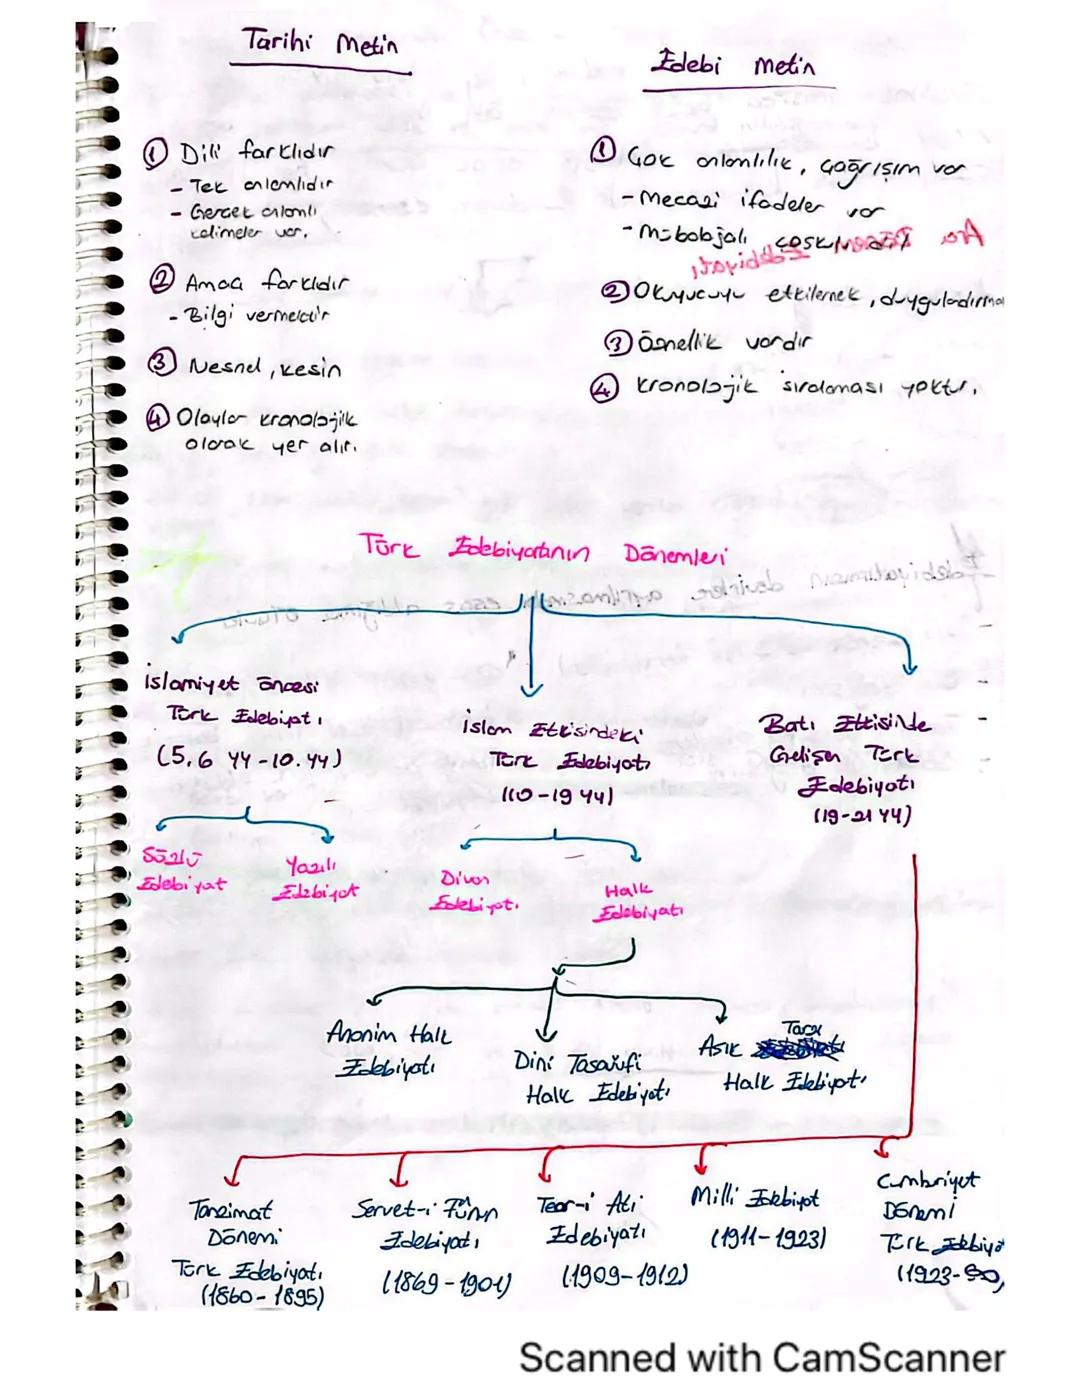 Tarihi Metin
① Dili farklıdır
- Tek anlamlıdır
- Gerçek anlamlı
kelimeler var.
② Amacı farklıdır
- Bilgi vermektir
③ Nesnel, kesin
④ Olaylar kronolojik
olarak yer alır.
Edebi Metin
① Çok anlamlılık, çağrışım var
- Mecazi ifadeler var
- Mübalağalı
② Okuyucuyu etkilemek, duygulandırma
③ Öznellik vardır
④ Kronolojik sıralaması yoktur.
Türk Edebiyatının Dönemleri
İslamiyet öncesi
Türk Edebiyatı
(5,6 yy-10.yy)
Sözlü
Edebiyat
Yazılı
Edebiyat
İslam Etkisindeki
Türk Edebiyatı
(10-19 yy)
Divan
Edebiyatı
Halk
Edebiyatı
Anonim Halk
Edebiyatı
Dini Tasavvufi
Halk Edebiyatı
Aşık Tarzı
Halk Edebiyatı
Batı Etkisinde
Gelişen Türk
Edebiyatı
(19-21 yy)
Tanzimat
Dönemi
Türk Edebiyatı
(1860-1895)
Servet-i Fünun
Edebiyatı
(1869-1901)
Fecr-i Ati
Edebiyatı
(1909-1912)
Milli Edebiyat
(1911-1923)
Cumhuriyet
Dönemi
Türk Edebiya
(1923-
Scanned with CamScanner